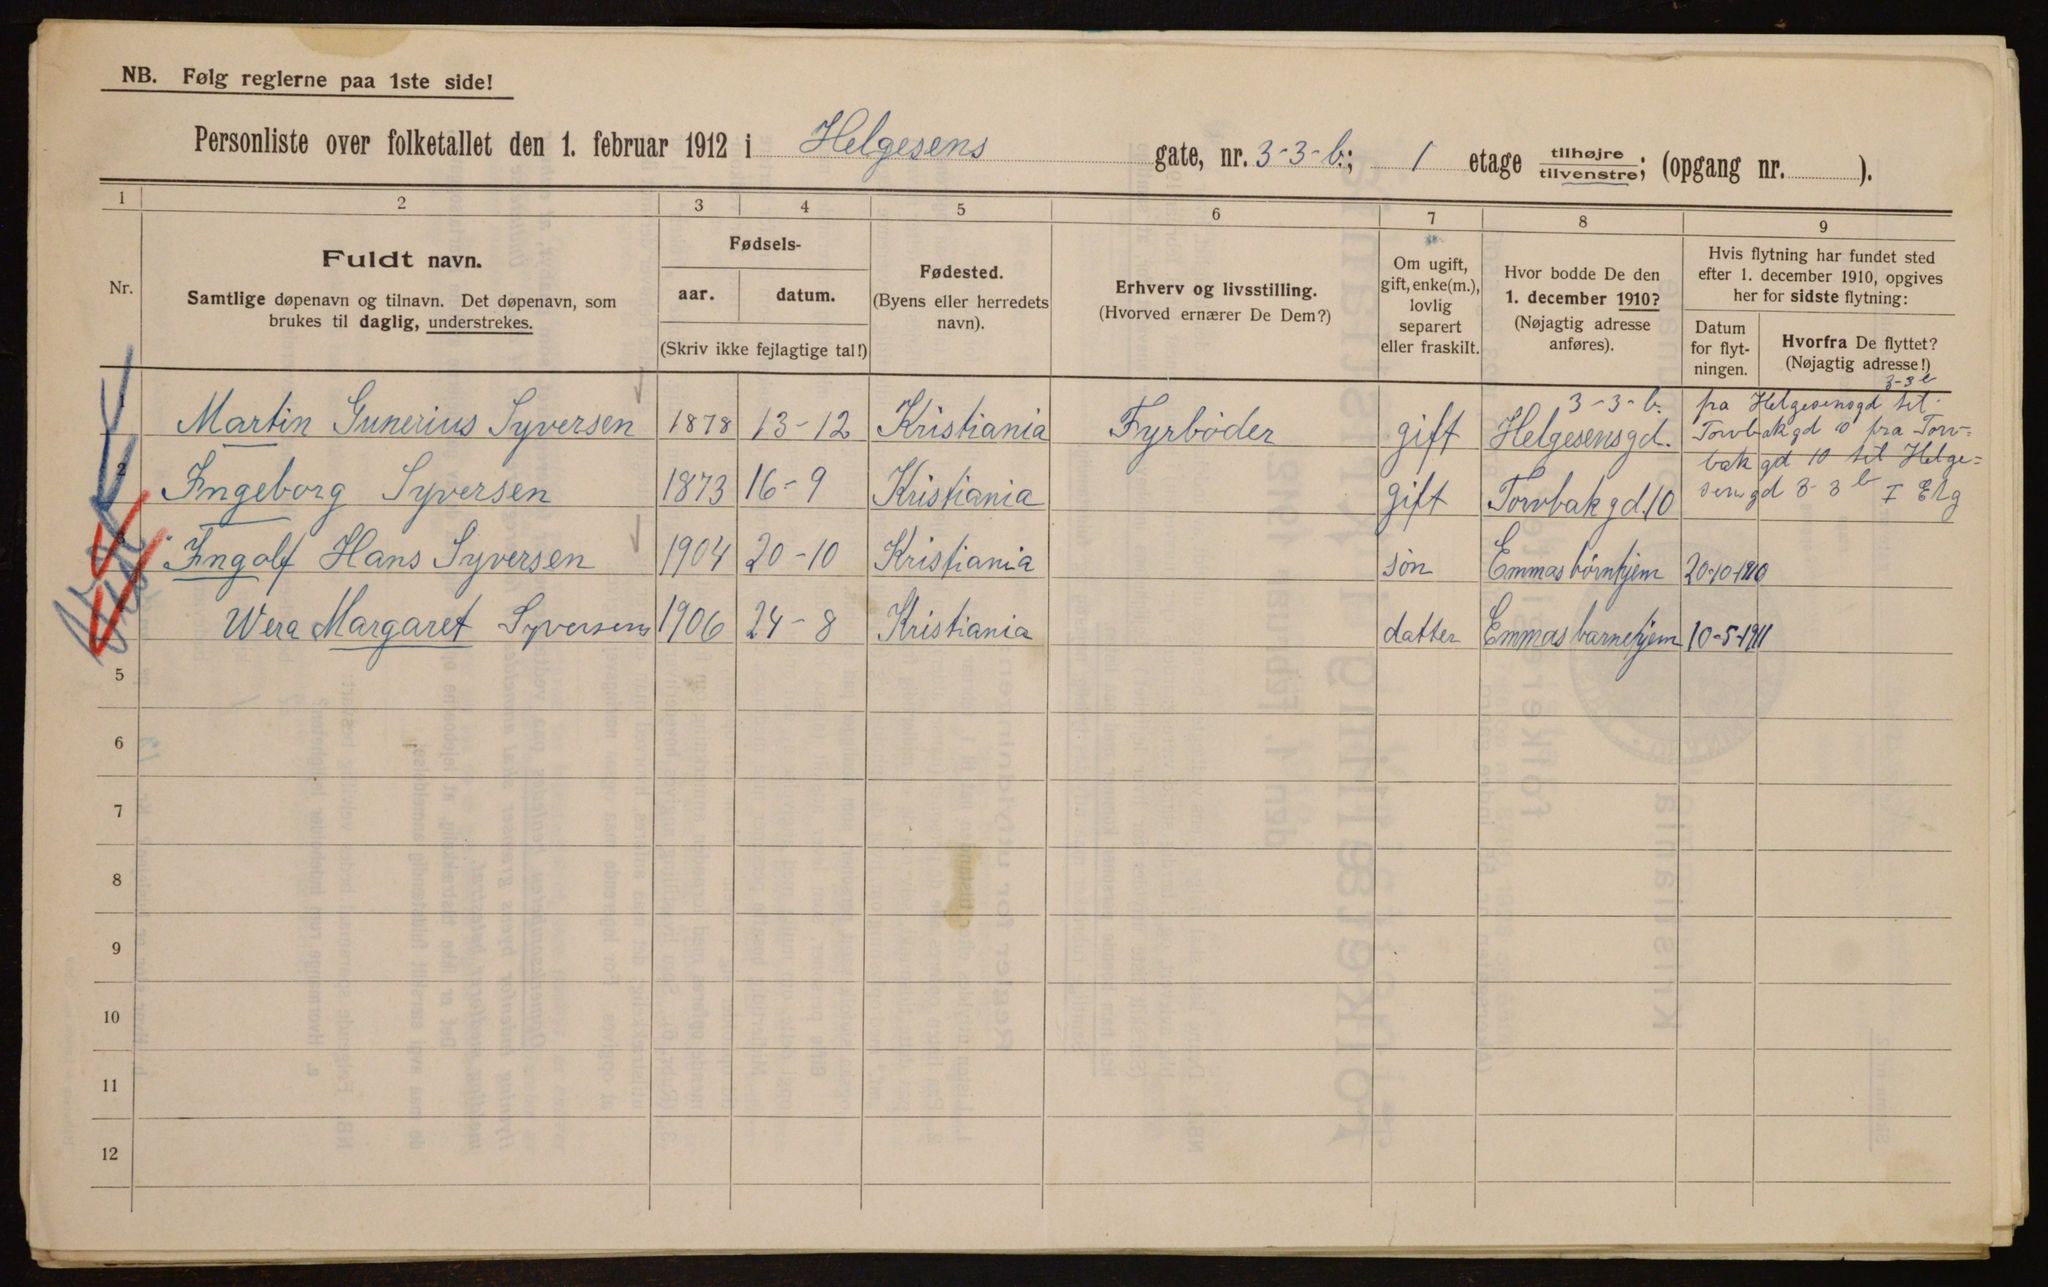 NB. Følg reglerne paa 1ste side!
Personliste over folketallet den 1. februar 1912 i Helgesens gate, nr. 3-3-b.; 1 etage tilhøjre tilvenstre; (opgang nr. ).
1 2 3 4 5 6 7 8 9
Nr.
Fuldt navn.
Samtlige døpenavn og tilnavn. Det døpenavn, som
brukes til daglig, understrekes.
Fødsels-
aar. datum.
(Skriv ikke fejlagtige tal!)
Fødested.
(Byens eller herredets
navn).
Erhverv og livsstilling.
(Hvorved ernærer De Dem?)
Om ugift,
gift, enke(m.),
lovlig
separert
eller fraskilt.
Hvor bodde De den
1. december 1910?
(Nøjagtig adresse
anføres).
Hvis flytning har fundet sted
efter 1. december 1910, opgives
her for sidste flytning:
Datum
for flyt-
ningen.
Hvorfra De flyttet?
(Nøjagtig adresse!)
1 Martin Gunerius Syversen 1878 13-12 Kristiania Fyrbøder gift 3-3-b. Helgesensgd.
3-3b
fra Helgesensgd til
Torvbakgd 10 fra Torv=
bakgd 10 til Helge=
sensgd 3-3b I Etg
2 Ingeborg Syversen 1873 16-9 Kristiania gift Torvbakgd. 10
Ingolf Hans Syversen 1904 20-10 Kristiania søn Emmas børnhjem 20-10-1910
Wera Margaret Syversen 1906 24-8 Kristiania datter Emmas barnehjem 10-5-1911
5
6
7
8
9
10
11
12